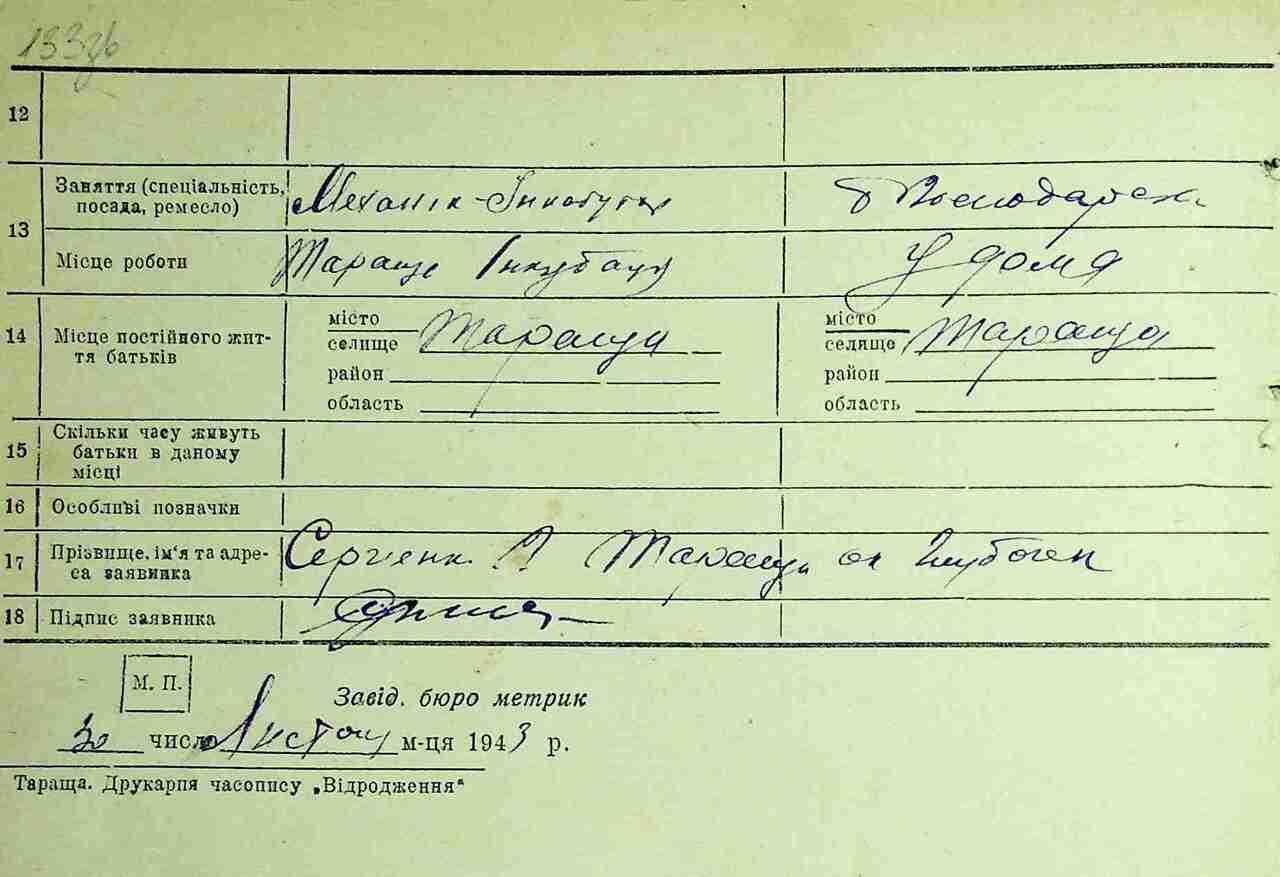 12
13
Заняття (спеціальність, посада, ремесло) Механік
Місце роботи Тараща у дома
14 Місце постійного життя батьків
місто Тараща місто Тараща
селище селище
район район
область область
15 Скільки часу живуть
батьки в даному
місці
16 Особливі позначки
17 Прізвище, ім'я та адре-
са заявника Сергієнк Тараща
18 Підпис заявника
М. П.
Завід. бюро метрик
30 число м-ця 1943 р.
Тараща. Друкарня часопису „Відродження“